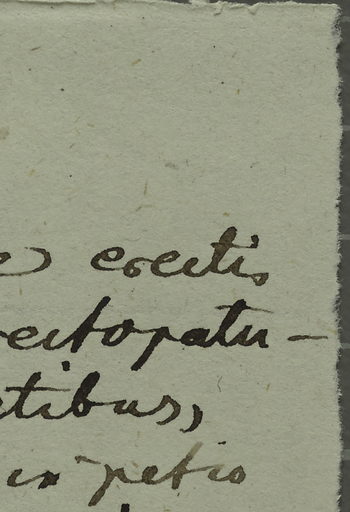 erectis
rectopatu-
tibus,
in petio